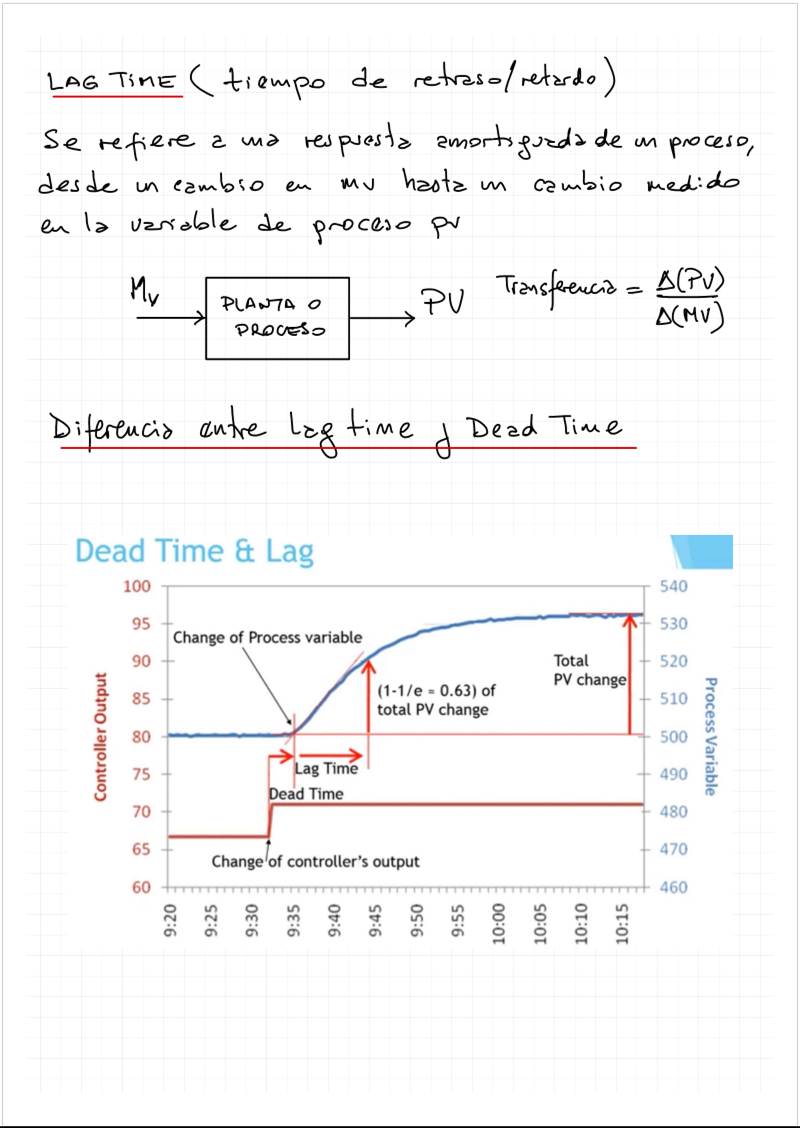 LAG TIME (tiempo de retraso/retardo)
Se refiere a una respuesta amortiguada de un proceso,
desde un cambio en mv hasta un cambio medido
en la variable de proceso pv
Mv
PLANTA O
PROCESO
PV
Transferencia = Δ(PV)
Δ(MV)
Diferencia entre Lag time y Dead Time
Dead Time & Lag
100
95
90
85
80
75
70
65
60
Controller Output
540
530
520
510
500
490
480
470
460
Process Variable
Change of Process variable
(1-1/e = 0.63) of
total PV change
Total
PV change
Lag Time
Dead Time
Change of controller's output
9:20
9:25
9:30
9:35
9:40
9:45
9:50
9:55
10:00
10:05
10:10
10:15